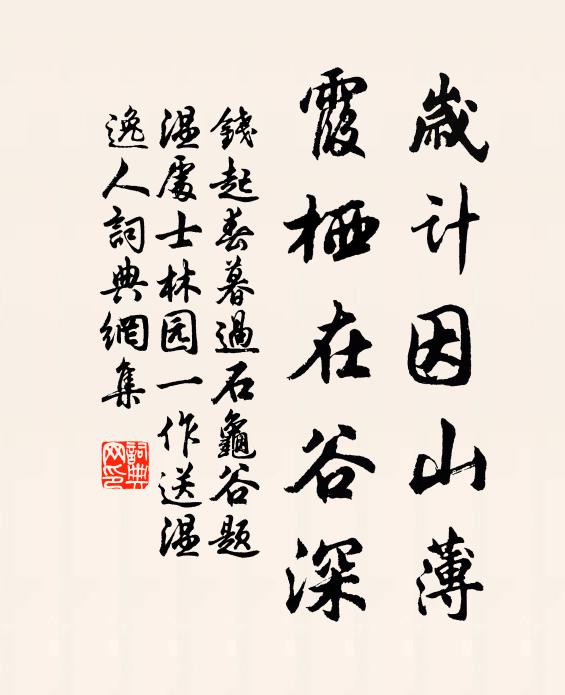 歲计因山薄
霞栖在谷深
錢起春暮過石龜谷题
温處士林园一作送温
逸人詞典網集
詞典网印